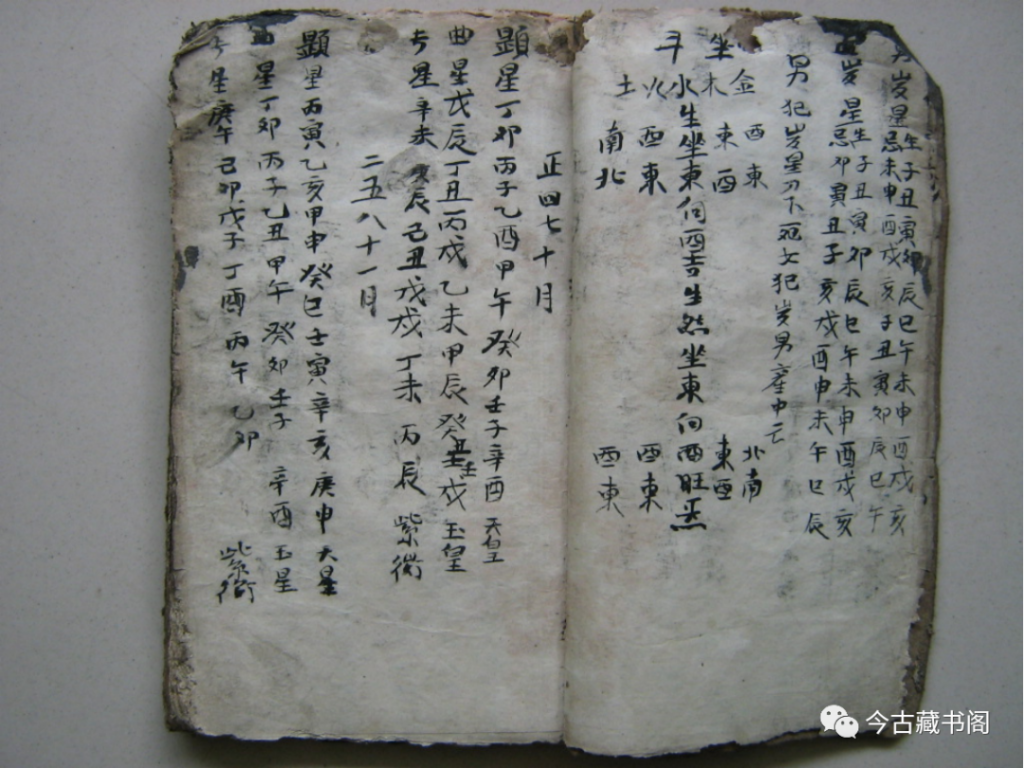 男岁星生子丑寅卯辰巳午未申酉戌亥
忌未申酉戌亥子丑寅卯辰巳午
岁星生子丑寅卯辰巳午未申酉戌亥
忌卯寅丑子亥戌酉申未午巳辰
男犯岁星刃下死女犯岁男產中亡
金 西東 北南
坐木 東西 東西
斗水生坐東向西吉生然坐東向西旺
火 西東 西東
土 南北 西東
正四七十月
顯星丁卯丙子乙酉甲午癸卯壬子辛酉 天皇
曲星戊辰丁丑丙戌乙未甲辰癸丑壬戌 玉皇
星辛未庚辰己丑戊戌丁未丙辰 紫微
二五八十一月
顯星丙寅乙亥甲申癸巳壬寅辛亥庚申 大星
曲星丁卯丙子乙丑甲午癸卯壬子辛酉 玉星
星庚午己卯戊子丁酉丙午乙卯 紫微
今古藏书阁